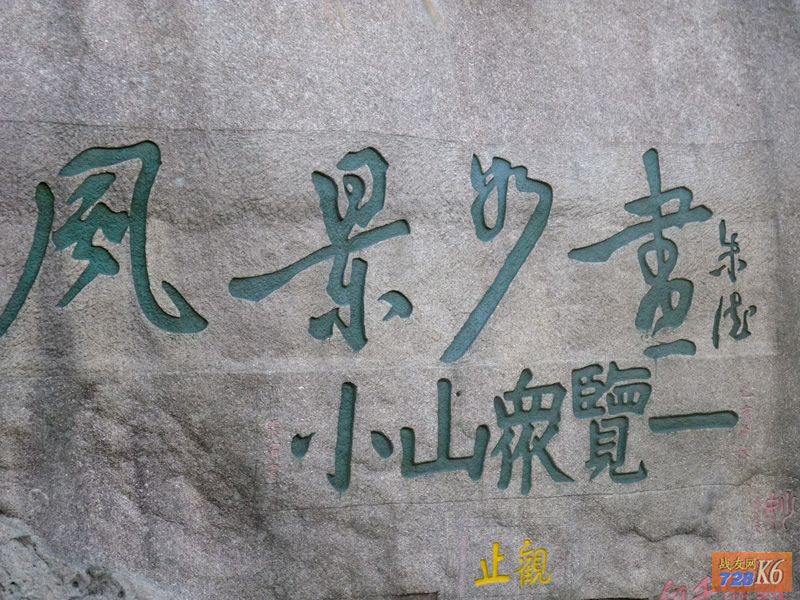 風景如畫
朱德
一覽眾山小
觀止
战友网
728 K6